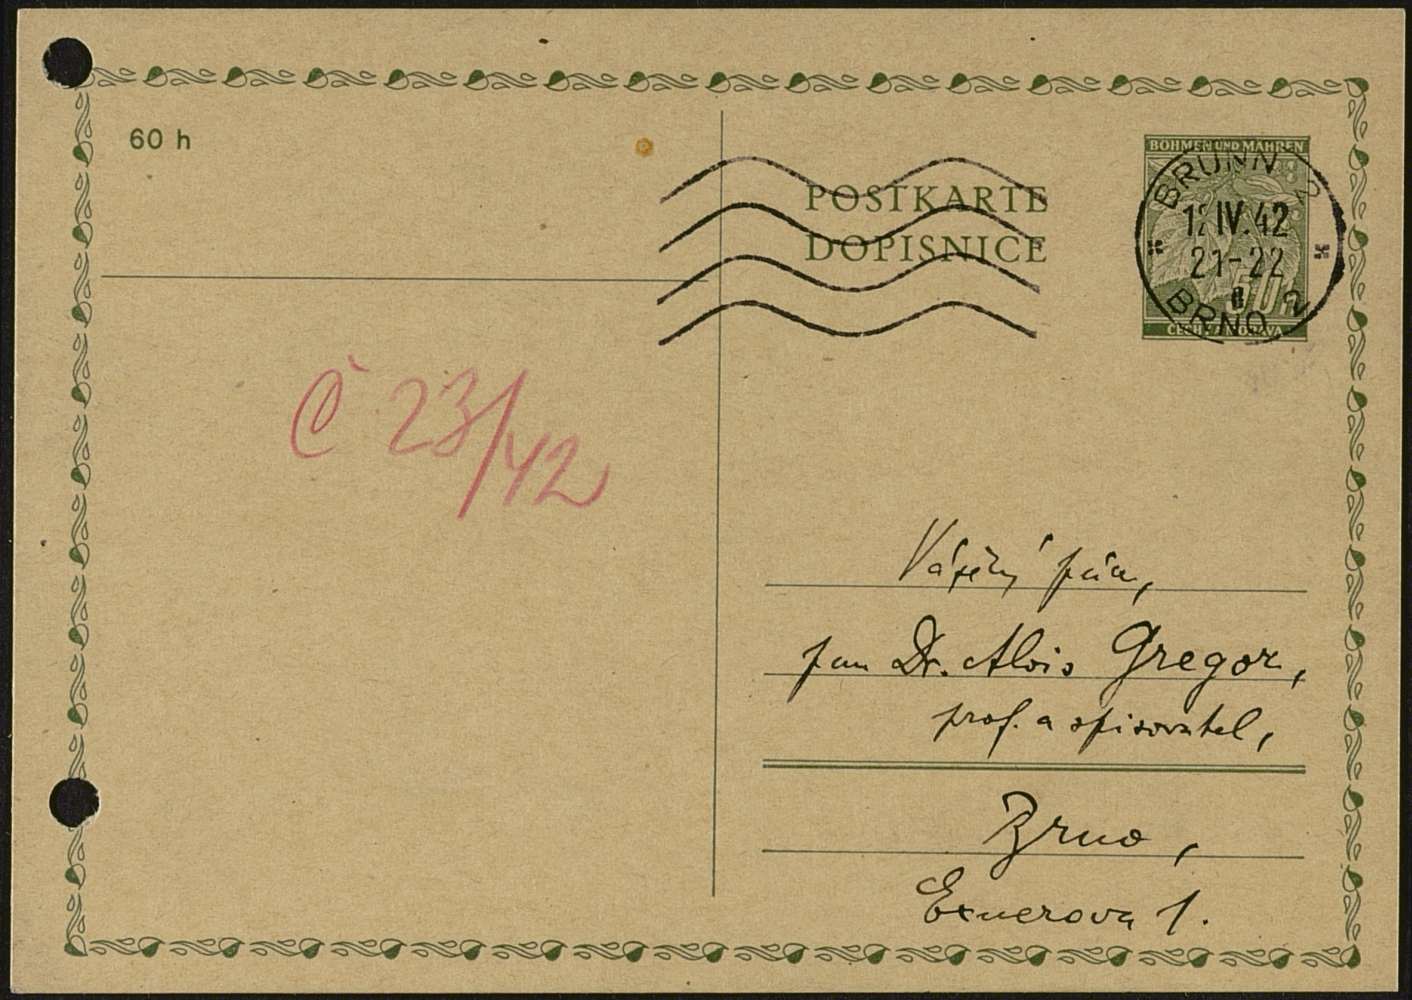 60 h
POSTKARTE
DOPISNICE
BÖHMEN UND MÄHREN
BRÜNN 2
12 IV. 42
21-22
BRNO 2
Č 23/42
Vážený pán,
pan Dr. Alois Gregor,
prof. a spisovatel,
Brno,
Exnerova 1.